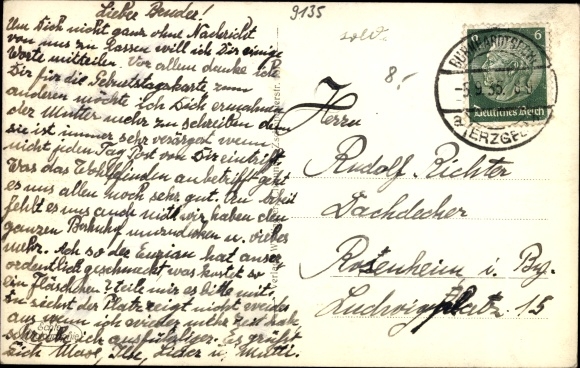 9135
Lieber Bruder!
Um Dich nicht ganz ohne Nachricht
von uns zu lassen will ich Dir einige
Worte mitteilen. Vor allem danke ich
Dir für die Geburtstagskarte zum
anderen möchte ich Dich ermahnen
der Mutter mehr zu schreiben denn
sie ist immer sehr verärgert wenn
nicht jeden Tag Post von Dir eintrifft.
Was das Wohlbefinden anbetrifft geht
es uns allen noch sehr gut. An Arbeit
fehlt es uns auch nicht wir haben den
ganzen Bahnhof u. vieles
mehr. Ach so der Enzian hat
ordentlich geschmeckt was kostet so
ein Fläschchen? teile mir es bitte mit.
Du siehst der Platz zeigt nicht weider
aus wenn ich wieder mehr Zeit hab
schreibe ich ausführlicher. Es grüßt
Dich u. Mutti.
8.-
6
Deutsches Reich
Herrn
Rudolf Richter
Dachdecker
Rosenheim i. By.
Ludwigsplatz 15